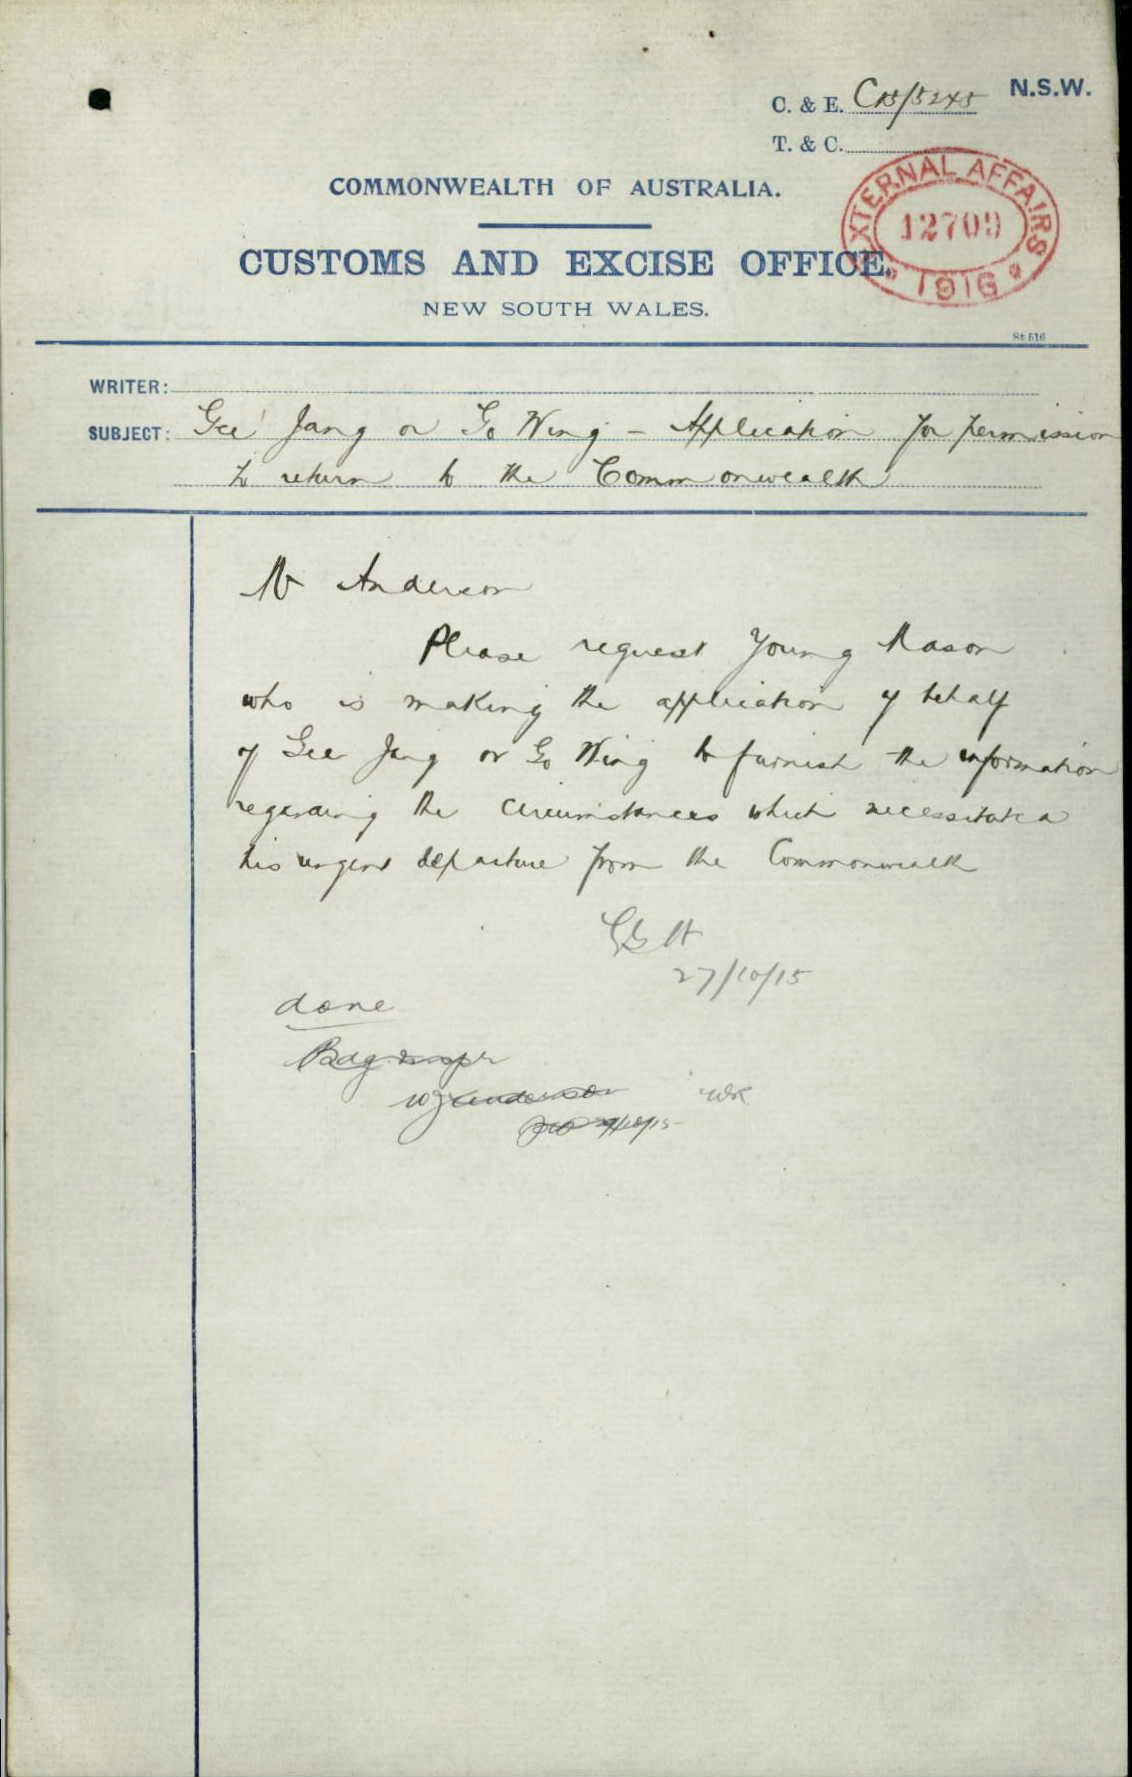 C. & E. C15/5245 N.S.W.
T. & C.
EXTERNAL AFFAIRS
12709
* 1916 *
COMMONWEALTH OF AUSTRALIA.
CUSTOMS AND EXCISE OFFICE,
NEW SOUTH WALES.
St 516
WRITER:
SUBJECT: Gee Jang or Go Wing – Application for permission
to return to the Commonwealth
Mr Anderson
Please request Young Mason
who is making the application of behalf
of Gee Jang or Go Wing to furnish the information
regarding the circumstances which necessitated
his urgent departure from the Commonwealth
27/10/15
done
WJ Anderson